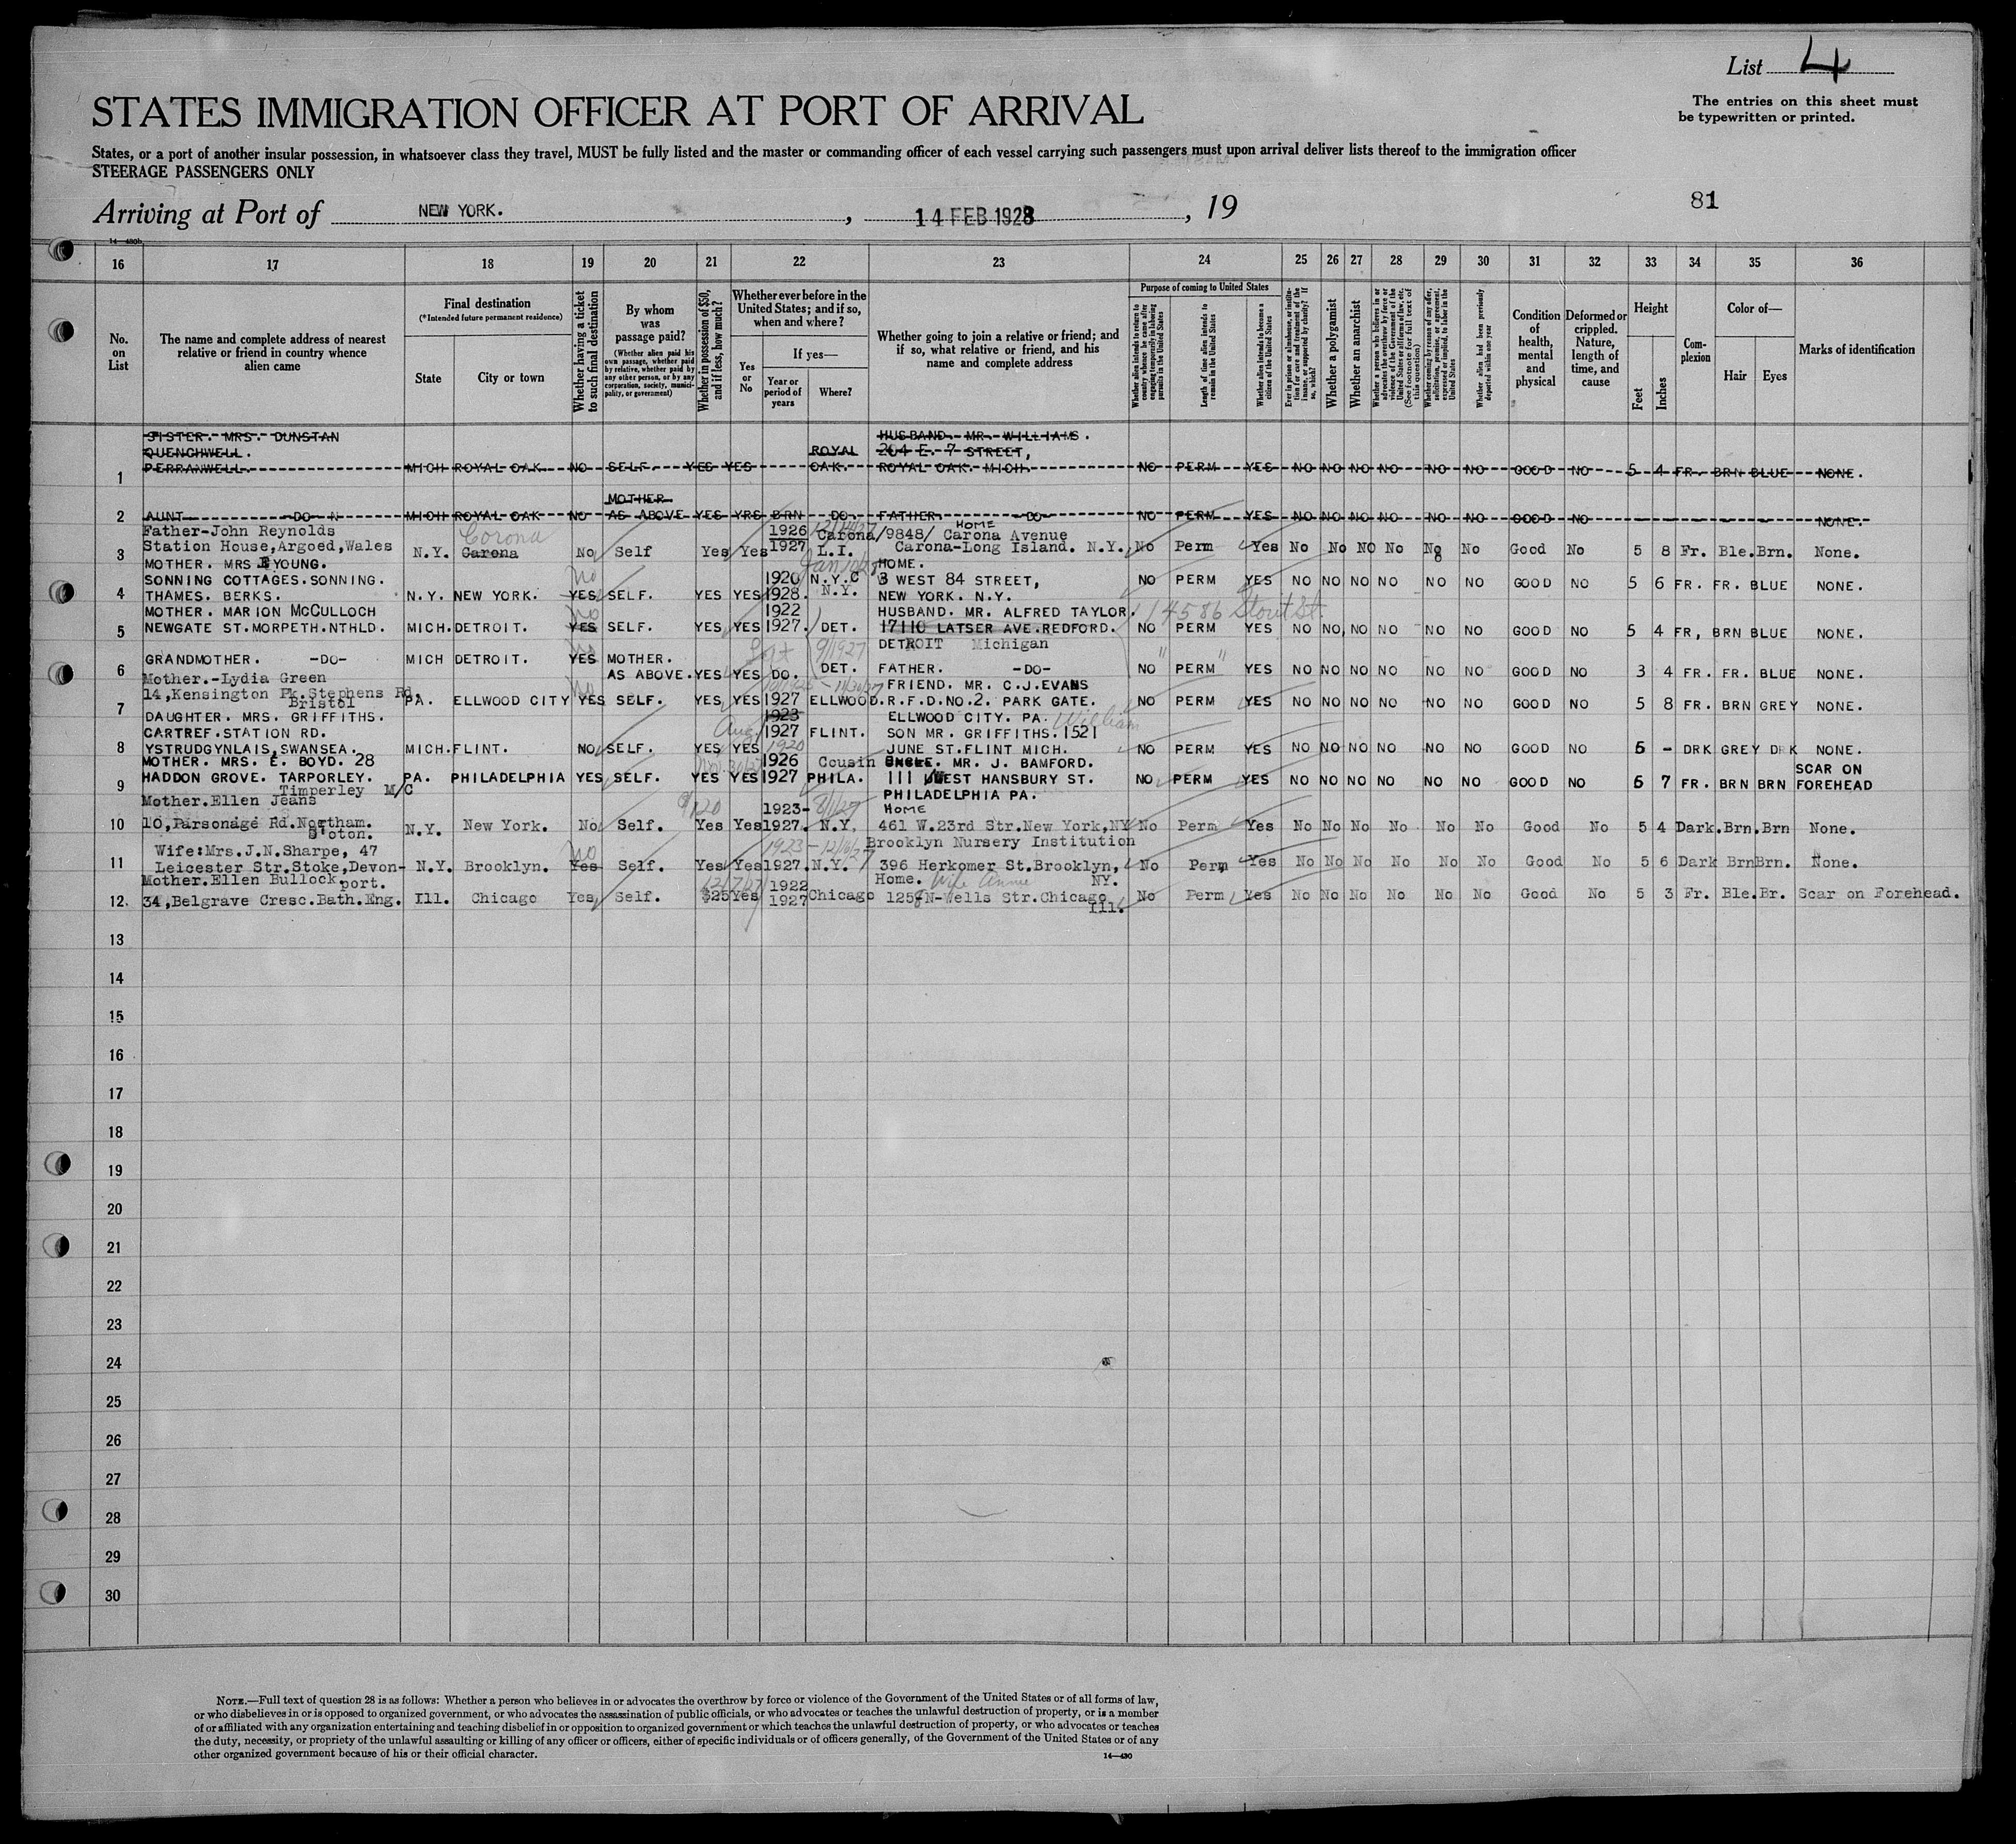 List 4
The entries on this sheet must
be typewritten or printed.
STATES IMMIGRATION OFFICER AT PORT OF ARRIVAL
States, or a port of another insular possession, in whatsoever class they travel, MUST be fully listed and the master or commanding officer of each vessel carrying such passengers must upon arrival deliver lists thereof to the immigration officer
STEERAGE PASSENGERS ONLY
Arriving at Port of NEW YORK. , 14 FEB 1928 , 19
81
14—430b
16 17 18 19 20 21 22 23 24 25 26 27 28 29 30 31 32 33 34 35 36
No. on List
The name and complete address of nearest relative or friend in country whence alien came
Final destination
(*Intended future permanent residence)
State
City or town
Whether having a ticket to such final destination
By whom was passage paid?
(Whether alien paid his own passage, whether paid by relative, whether paid by any other person, or by any corporation, society, municipality, or government)
Whether in possession of $50, and if less, how much?
Whether ever before in the United States; and if so, when and where?
Yes or No
If yes—
Year or period of years
Where?
Whether going to join a relative or friend; and if so, what relative or friend, and his name and complete address
Purpose of coming to United States
Whether alien intends to return to country whence he came after engaging temporarily in laboring pursuits in the United States
Length of time alien intends to remain in the United States
Whether alien intends to become a citizen of the United States
Ever in prison or almshouse, or institution for care and treatment of the insane, or supported by charity? If so, which?
Whether a polygamist
Whether an anarchist
Whether a person who believes in or advocates the overthrow by force or violence of the Government of the United States or all forms of law, etc. (See footnote for full text of this question)
Whether coming by reason of any offer, solicitation, promise, or agreement, expressed or implied, to labor in the United States
Whether alien had been previously deported within one year
Condition of health, mental and physical
Deformed or crippled. Nature, length of time, and cause
Height
Feet
Inches
Complexion
Color of—
Hair
Eyes
Marks of identification
SISTER. MRS. DUNSTAN HUSBAND. MR. WILLIAMS.
QUENCHWELL. ROYAL 264 E. 7 STREET,
1 PERRANWELL. MICH ROYAL OAK NO SELF. YES YES OAK. ROYAL OAK. MICH. NO PERM YES NO NO NO NO NO NO GOOD NO 5 4 FR. BRN BLUE NONE.
MOTHER
2 AUNT DO N MICH ROYAL OAK NO AS ABOVE YES YRS BRN DO. FATHER. DO NO PERM YES NO NO NO NO NO NO GOOD NO NONE.
Father-John Reynolds Corona 1926 Carona/9848/ Carona Avenue HOME
3 Station House,Argoed,Wales N.Y. Carona No Self Yes Yes 1927 L.I. Carona-Long Island. N.Y. No Perm Yes No No No No No No Good No 5 8 Fr. Ble.Brn. None.
MOTHER. MRS E YOUNG. HOME.
SONNING COTTAGES.SONNING. No 1920 N.Y.C 3 WEST 84 STREET,
4 THAMES. BERKS. N.Y. NEW YORK. YES SELF. YES YES 1928. N.Y. NEW YORK. N.Y. NO PERM YES NO NO NO NO NO NO GOOD NO 5 6 FR. FR. BLUE NONE.
MOTHER. MARION McCULLOCH No 1922 HUSBAND. MR. ALFRED TAYLOR. 14586 Stout St.
5 NEWGATE ST.MORPETH.NTHLD. MICH.DETROIT. YES SELF. YES YES 1927. DET. 17110 LATSER AVE.REDFORD. NO PERM YES NO NO NO NO NO NO GOOD NO 5 4 FR, BRN BLUE NONE.
DETROIT Michigan
No 9/1927
6 GRANDMOTHER. -DO- MICH DETROIT. YES MOTHER. AS ABOVE. YES YES DO. DET. FATHER. -DO- NO PERM YES NO NO NO NO NO NO GOOD NO 3 4 FR. FR. BLUE NONE.
Mother.-Lydia Green No FRIEND. MR. C.J.EVANS
7 14,Kensington Pk.Stephens Rd. Bristol PA. ELLWOOD CITY YES SELF. YES YES 1927 ELLWOOD. R.F.D.NO.2. PARK GATE. NO PERM YES NO NO NO NO NO NO GOOD NO 5 8 FR. BRN GREY NONE.
DAUGHTER. MRS. GRIFFITHS. 1923 ELLWOOD CITY. PA. William
CARTREF.STATION RD. Aug 1927 FLINT. SON MR. GRIFFITHS.1521
8 YSTRUDGYNLAIS,SWANSEA. MICH.FLINT. NO SELF. YES YES 1920 JUNE ST.FLINT MICH. NO PERM YES NO NO NO NO NO NO GOOD NO 5 - DRK GREY DRK NONE.
MOTHER. MRS. E. BOYD. 28 1926 Cousin UNCLE. MR. J. BAMFORD. SCAR ON
9 HADDON GROVE. TARPORLEY. Timperley M/C PA. PHILADELPHIA YES SELF. YES YES 1927 PHILA. 111 WEST HANSBURY ST. NO PERM YES NO NO NO NO NO NO GOOD NO 5 7 FR. BRN BRN FOREHEAD
PHILADELPHIA PA.
Mother.Ellen Jeans 1923- 8/1/27 HOME
10 10,Parsonage Rd.Northam. S'oton. N.Y. New York. No Self. Yes Yes 1927. N.Y. 461 W.23rd Str.New York,NY No Perm Yes No No No No No No Good No 5 4 Dark.Brn.Brn None.
Wife:Mrs.J.N.Sharpe, 47 No Brooklyn Nursery Institution
11 Leicester Str.Stoke,Devonport. N.Y. Brooklyn. Yes Self. Yes Yes 1927. N.Y. 396 Herkomer St.Brooklyn, NY. No Perm Yes No No No No No No Good No 5 6 Dark BrnBrn. None.
Mother.Ellen Bullock 1922 Home. Wife Annie
12. 34,Belgrave Cresc.Bath.Eng. Ill. Chicago Yes Self. $25 Yes 1927 Chicago 1258 N-Wells Str.Chicago Ill. No Perm Yes No No No No No No Good No 5 3 Fr. Ble.Br. Scar on Forehead.
13
14
15
16
17
18
19
20
21
22
23
24
25
26
27
28
29
30
NOTE.—Full text of question 28 is as follows: Whether a person who believes in or advocates the overthrow by force or violence of the Government of the United States or of all forms of law,
or who disbelieves in or is opposed to organized government, or who advocates the assassination of public officials, or who advocates or teaches the unlawful destruction of property, or is a member
of or affiliated with any organization entertaining and teaching disbelief in or opposition to organized government or which teaches the unlawful destruction of property, or who advocates or teaches
the duty, necessity, or propriety of the unlawful assaulting or killing of any officer or officers, either of specific individuals or of officers generally, of the Government of the United States or of any
other organized government because of his or their official character.
14—430